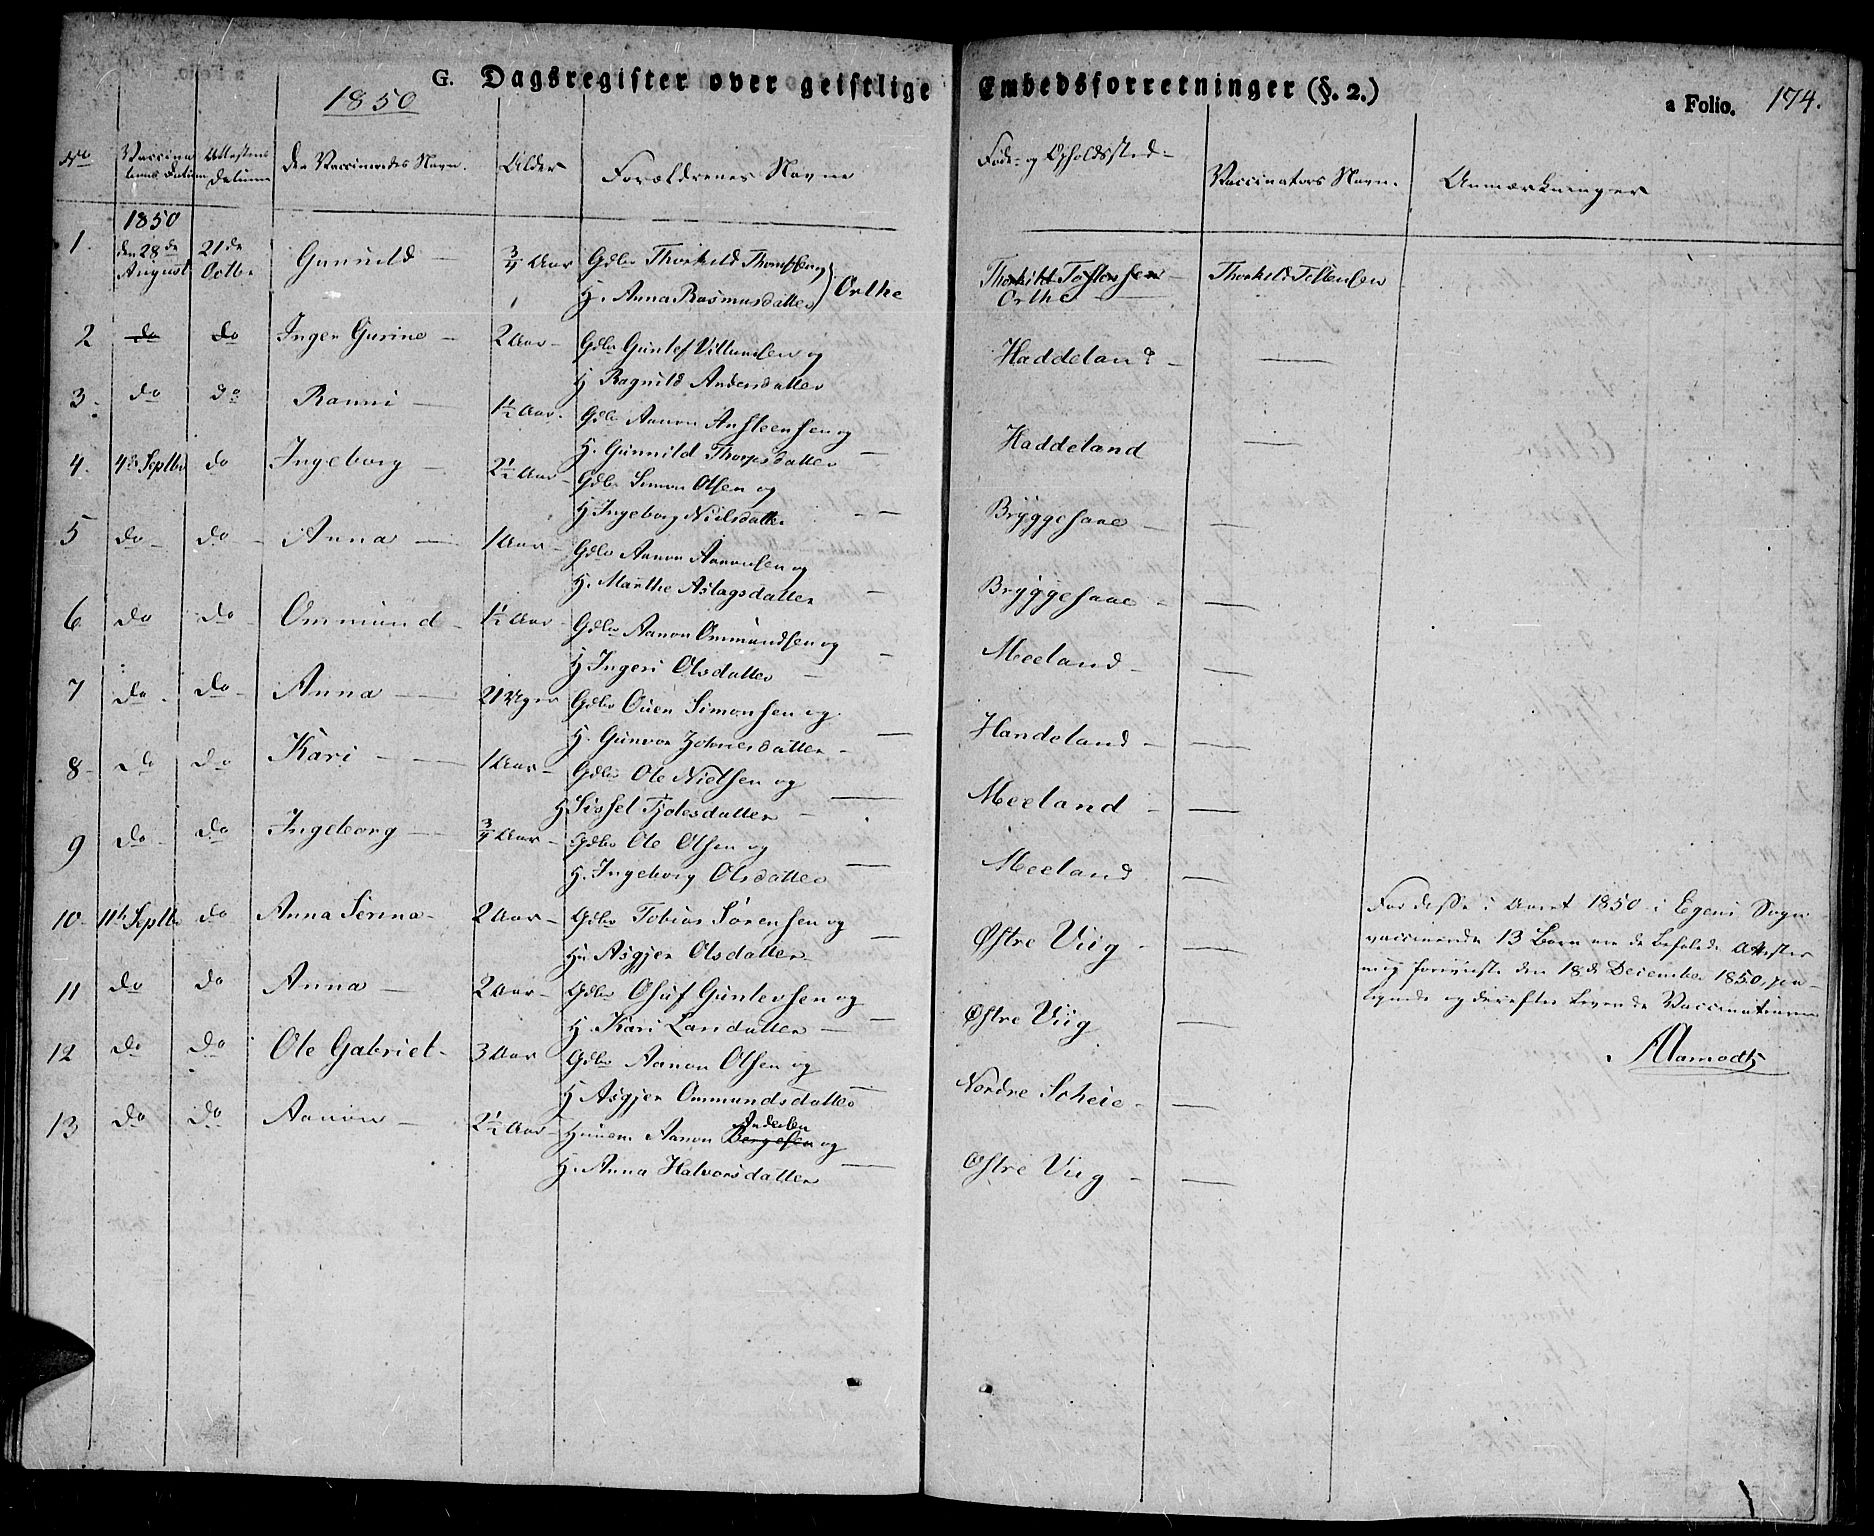 G. Dagsregister over geistlige Embedsforretninger (§. 2.)
a Folio. 174.
1850
No Vaccinationens Datum Attestens Datum Den Vaccineredes Navn. Alder Forældrenes Navne Føde- og Opholdssted Vaccinators Navn. Anmærkninger
1850
1. den 28de August 21de Octbr Gunnild 3/4 Aar Gdbr Thorkild og
H. Anna Rasmusdatter Orthe Thorkild Tostensen Orthe Thorkild Tostensen
2 do do Inger Gurine 2 Aar Gdbr Guntef Villumsen og
H Ragnild Andersdatter Haddeland
3. do do Ranni 1½ Aar. Gdbr Aanon Austeensen og
H. Gunnild Haddeland
4. 4de Septbr do Ingeborg 2½ Aar Gdbr Simon Olsen og
H Ingeborg Nielsdatter Bryggesaae
5 do do Anna 1 Aar Gdbr Aanon Aanonsen og
H. Marthe Aslagsdatter Bryggesaae
6 do do Ommund 1½ Aar Gdbr Aanon Ommundsen og
H Ingeri Olsdatter Meeland
7 do do Anna 21 Uger Gdbr Ouen Simonsen og
H. Gunvor Handeland
8 do do Kari 1 Aar Gdbr Ole Nielsen og
H Sissel Meeland
9 do do Ingeborg 3/4 Aar Gdbr Ole Olsen og
H. Ingeborg Olsdatter Meeland
10. 11te Septbr do Anna Serina 2 Aar Gdbr Tobias Sørensen og
H. Asgjer Olsdatter Østre Viig
11 do do Anna 2 Aar Gdbr Oluf Guntevsen og
H. Kari Østre Viig
12 do do Ole Gabriel 3 Aar Gdbr Aanon Olsen og
H Asgjer Ommundsdatter Nordre Scheie
13 do do Aanon 2½ Aar Aanon Bergesen Andersen og
H. Anna Halvorsdatter Østre Viig
For disse i Aaret 1850 i Sogn
vaccinerede 13 Børn ere de befalede Attester
mig den 18de December 1850,
og derefter Vaccinationen